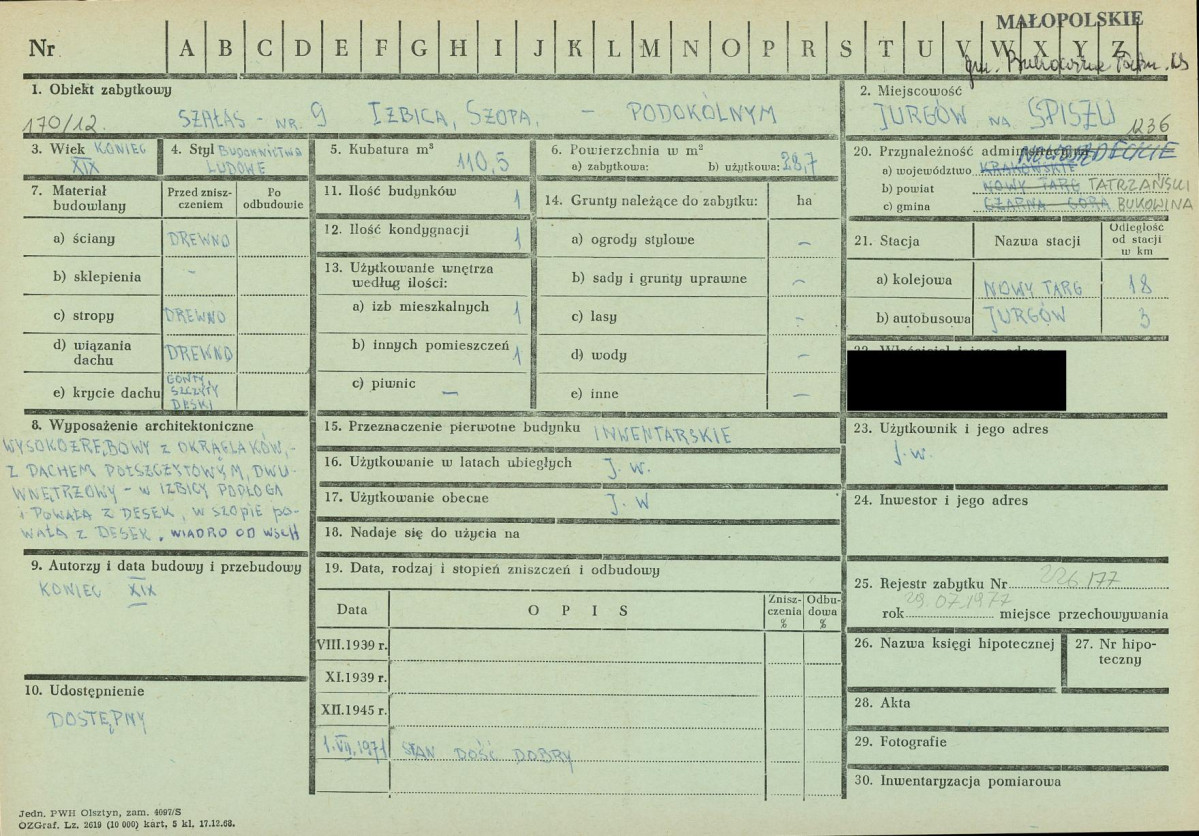 MAŁOPOLSKIE
Nr A B C D E F G H I J K L M N O P R S T U V W X Y Z
gm. Bukowina Tatrz.
1. Obiekt zabytkowy
170/12. SZAŁAS - NR. 9 IZBICA, SZOPA, - PODOKÓLNYM
2. Miejscowość
JURGÓW NA SPISZU
1236
3. Wiek KONIEC
XIX
4. Styl BUDOWNICTWA
LUDOWE
5. Kubatura m³
110,5
6. Powierzchnia w m²
a) zabytkowa: b) użytkowa: 28,7
7. Materiał
budowlany
Przed znisz-
czeniem
Po
odbudowie
a) ściany DREWNO
b) sklepienia -
c) stropy DREWNO
d) wiązania
dachu DREWNO
e) krycie dachu GONTY,
SZCZYTY
DESKI
8. Wyposażenie architektoniczne
WYSOKOZRĘBOWY Z OKRĄGLAKÓW,-
Z DACHEM PÓŁSZCZYTOWYM, DWU-
WNĘTRZOWY - W IZBICY PODŁOGA
I POWAŁA Z DESEK, W SZOPIE PO-
WAŁA Z DESEK, WIADRO OD WSCH
9. Autorzy i data budowy i przebudowy
KONIEC XIX
10. Udostępnienie
DOSTĘPNY
11. Ilość budynków 1
12. Ilość kondygnacji 1
13. Użytkowanie wnętrza
według ilości:
a) izb mieszkalnych 1
b) innych pomieszczeń 1
c) piwnic —
14. Grunty należące do zabytku: ha
a) ogrody stylowe -
b) sady i grunty uprawne -
c) lasy -
d) wody -
e) inne -
15. Przeznaczenie pierwotne budynku INWENTARSKIE
16. Użytkowanie w latach ubiegłych J. W.
17. Użytkowanie obecne J. W
18. Nadaje się do użycia na
19. Data, rodzaj i stopień zniszczeń i odbudowy
Data O P I S Znisz-
czenia
% Odbu-
dowa
%
VIII.1939 r.
XI.1939 r.
XII.1945 r.
1.VII.1971 STAN DOŚĆ DOBRY
20. Przynależność administracyjna
NOWOSĄDECKIE
a) województwo KRAKOWSKIE
b) powiat NOWY TARG TATRZAŃSKI
c) gmina CZARNA GÓRA BUKOWINA
21. Stacja Nazwa stacji Odległość
od stacji
w km
a) kolejowa NOWY TARG 18
b) autobusowa JURGÓW 3
22. Właściciel i jego adres
23. Użytkownik i jego adres
J. w.
24. Inwestor i jego adres
25. Rejestr zabytku Nr 226/77
29.07.1977
rok miejsce przechowywania
26. Nazwa księgi hipotecznej
27. Nr hipo-
teczny
28. Akta
29. Fotografie
30. Inwentaryzacja pomiarowa
Jedn. PWH Olsztyn, zam. 4097/S
OZGraf. Lz. 2619 (10 000) kart. 5 kl. 17.12.68.